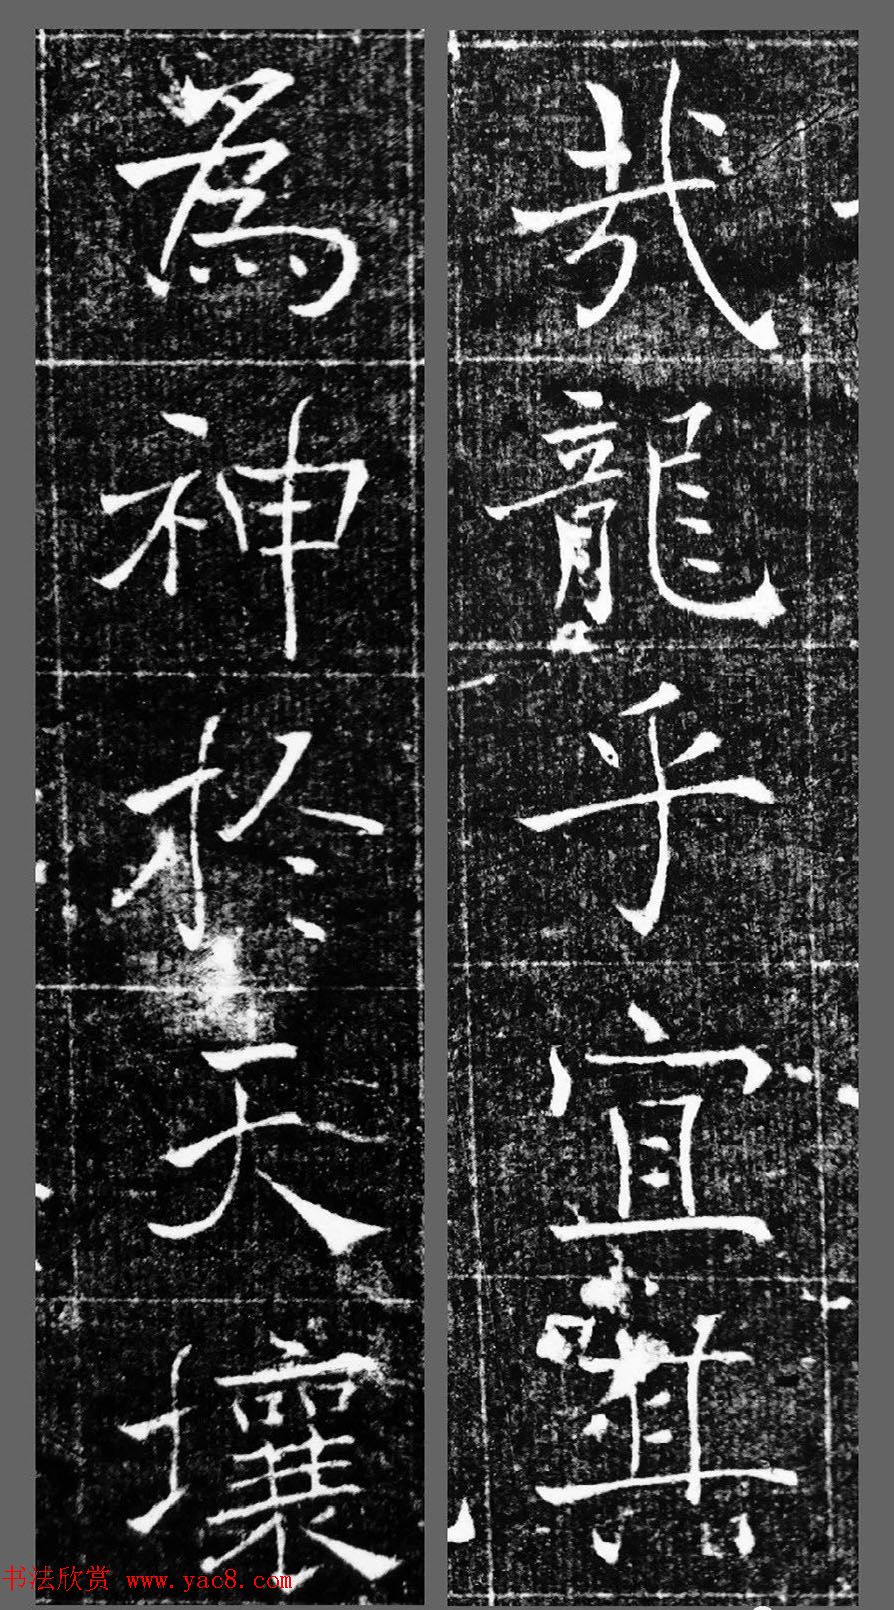 哉龍乎宜其
為神於天壤
书法欣赏 www.yac8.com